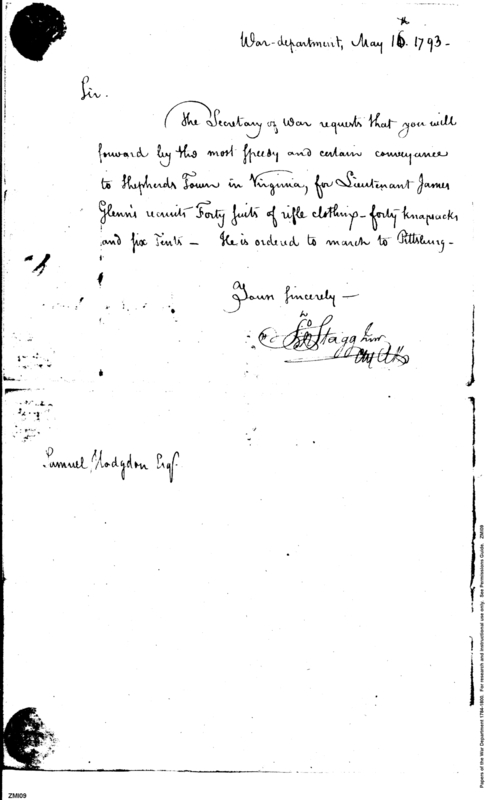 War-department, May 16th. 1793-
Sir.
The Secretary of War requests that you will
forward by the most speedy and certain conveyance
to Shepherds Town in Virginia, for Lieutenant James
Glenn's recruits Forty suits of rifle clothing - forty knapsacks
and six Tents - He is ordered to march to Pittsburg -
Yours sincerely -
Jno Stagg Junr
Samuel Hodgdon Esqr.
Papers of the War Department 1784-1800. For research and instructional use only. See Permissions Guide. ZMI09
ZMI09